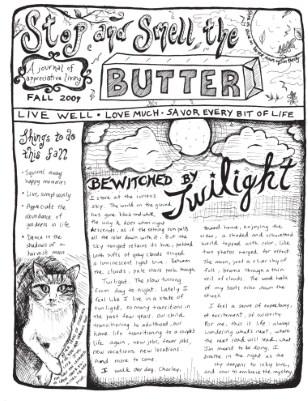 Stop and Smell the
BUTTER
A journal of
appreciative living
FALL 2009
LIVE WELL • LOVE MUCH • SAVOR EVERY BIT OF LIFE
Things to do
this fall
• Squirrel away
happy memories
• Live sumptuously
• Appreciate the
abundance of
goodness in life
• Dance in the
shadows of a
harvest moon
BEWITCHED BY
Twilight
I stare at the
sky. The world on the ground
has gone black and
descends, as if the setting sun pulls
all the color down with it. But the
sky
with tufts of gray clouds tinged
a luminescent light
the clouds, pale stars push through
Twilight. The slow turning
from day to night. Lately I
feel like I live in a state of
so many transitions in
the past few years. Our child
transitioning to adulthood, our
home life transitioning to a
life again, new jobs, fewer jobs,
new vacations, new locations.
And more to come.
I walk our dog, Charley,
toward home, enjoying the
view, a shaded and silhouetted
world topped with color, like
two photos merged. For effect
the moon, just a sliver shy of
full, beams through a thin
veil of clouds. The wood heels
of my boots echo down the
I feel a sense of expectancy,
of excitement, of curiosity.
For me, this is life: always
wondering what's next, where
the next road will lead, what
I'm meant to be doing. I
breathe in the night as the
sky deepens to inky blue,
and vow to embrace the mystery